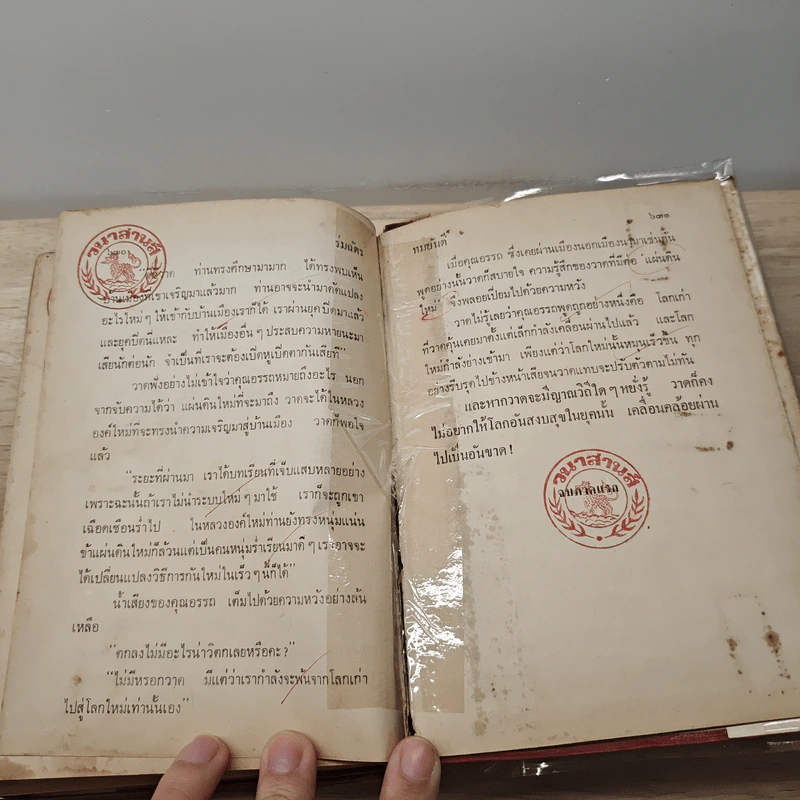 ร่มฉัตร
วนาสานส์
๖๓๐
วาด ท่านทรงศึกษามามาก ได้ทรงพบเห็น
บ้านเมืองที่เขาเจริญมาแล้วมาก ท่านอาจจะนำมาดัดแปลง
อะไรใหม่ๆ ให้เข้ากับบ้านเมืองเราก็ได้ เราผ่านยุคปิดมาแล้ว
และยุคปิดนี่แหละ ทำให้เมืองอื่นๆ ประสบความหายนะมา
เสียนักต่อนัก จำเป็นที่เราจะต้องเปิดหูเปิดตากันเสียที”
วาดฟังอย่างไม่เข้าใจว่าคุณอรรถหมายถึงอะไร นอก
จากจับความได้ว่า แผ่นดินใหม่ที่จะมาถึง วาดจะได้ในหลวง
องค์ใหม่ที่จะทรงนำความเจริญมาสู่บ้านเมือง วาดก็พอใจ
แล้ว
“ระยะที่ผ่านมา เราได้บทเรียนที่เจ็บแสบหลายอย่าง
เพราะฉะนั้นถ้าเราไม่นำระบบใหม่ๆ มาใช้ เราก็จะถูกเขา
เฉือดเชือนร่ำไป ในหลวงองค์ใหม่ท่านยังทรงหนุ่มแน่น
ข้าแผ่นดินใหม่ก็ล้วนแต่เป็นคนหนุ่มร่ำเรียนมาดีๆ เราอาจจะ
ได้เปลี่ยนแปลงวิธีการกันใหม่ในเร็วๆ นี้ก็ได้”
น้ำเสียงของคุณอรรถ เต็มไปด้วยความหวังอย่างล้น
เหลือ
“ตกลงไม่มีอะไรน่าวิตกเลยหรือคะ?”
“ไม่มีหรอกวาด มีแต่ว่าเรากำลังจะพ้นจากโลกเก่า
ไปสู่โลกใหม่เท่านั้นเอง”
ทมยันตี
๖๓๑
เมื่อคุณอรรถ ซึ่งเคยผ่านเมืองนอกเมืองนามาเช่นกัน
พูดอย่างนั้นวาดก็สบายใจ ความรู้สึกของวาดที่มีต่อ ‘แผ่นดิน
ใหม่’ จึงพลอยเปี่ยมไปด้วยความหวัง
วาดไม่รู้เลยว่าคุณอรรถพูดถูกอย่างหนึ่งคือ โลกเก่า
ที่วาดคุ้นเคยมาตั้งแต่เล็กกำลังเคลื่อนผ่านไปแล้ว และโลก
ใหม่กำลังย่างเข้ามา เพียงแต่ว่าโลกใหม่นั้นหมุนเร็วขึ้น ทุก
อย่างรีบรุดไปข้างหน้าเสียจนวาดแทบจะปรับตัวตามไม่ทัน
และหากวาดจะมีญาณวิถีใดๆ หยั่งรู้ วาดก็คง
ไม่อยากให้โลกอันสงบสุขในยุคนั้น เคลื่อนคล้อยผ่าน
ไปเป็นอันขาด!
วนาสานส์
จบภาคแรก